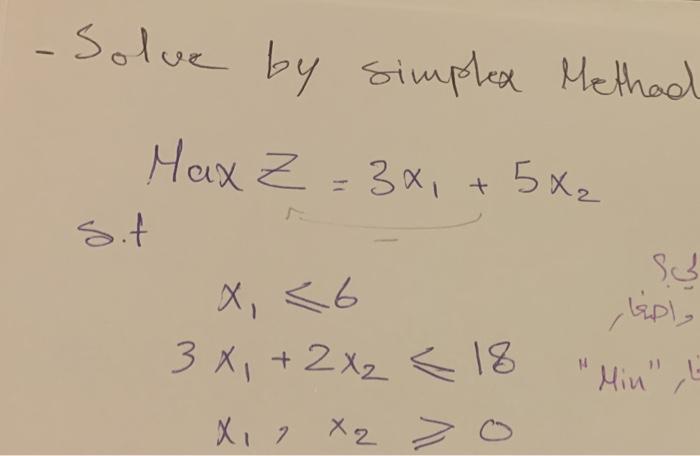 - Solve by simplex Method
Max Z = 3x₁ + 5x₂
s.t
x₁ ⩽ 6
3x₁ + 2x₂ ⩽ 18
"Min"
x₁ , x₂ ⩾ 0